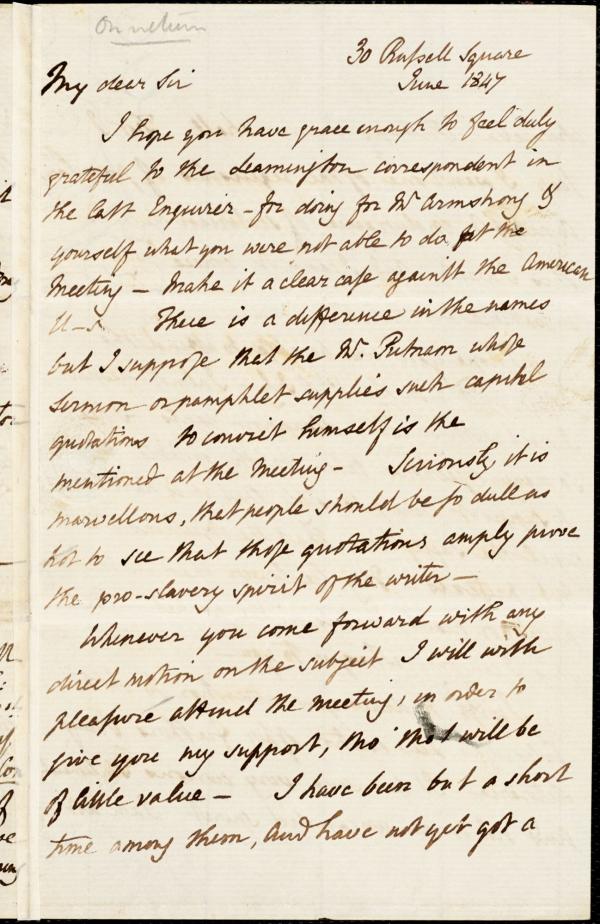 On return
30 Russell Square
June 1847
My dear Sir
I hope you have grace enough to feel duly
grateful to the Leamington correspondent in
the last Enquirer - for doing for Mr Armstrong &
yourself what you were not able to do at the
Meeting - Make it a clear case against the American
U-s. There is a difference in the names
but I suppose that the Mr. Putnam whose
sermon or pamphlet supplies such capital
quotations to convict himself is the
mentioned at the Meeting - Seriously it is
marvellous, that people should be so dull as
not to see that those quotations amply prove
the pro-slavery spirit of the writer -
Whenever you come forward with any
direct motion on the subject I will with
pleasure attend the meeting, in order to
give you my support, tho' that will be
of little value - I have been but a short
time among them, and have not yet got a